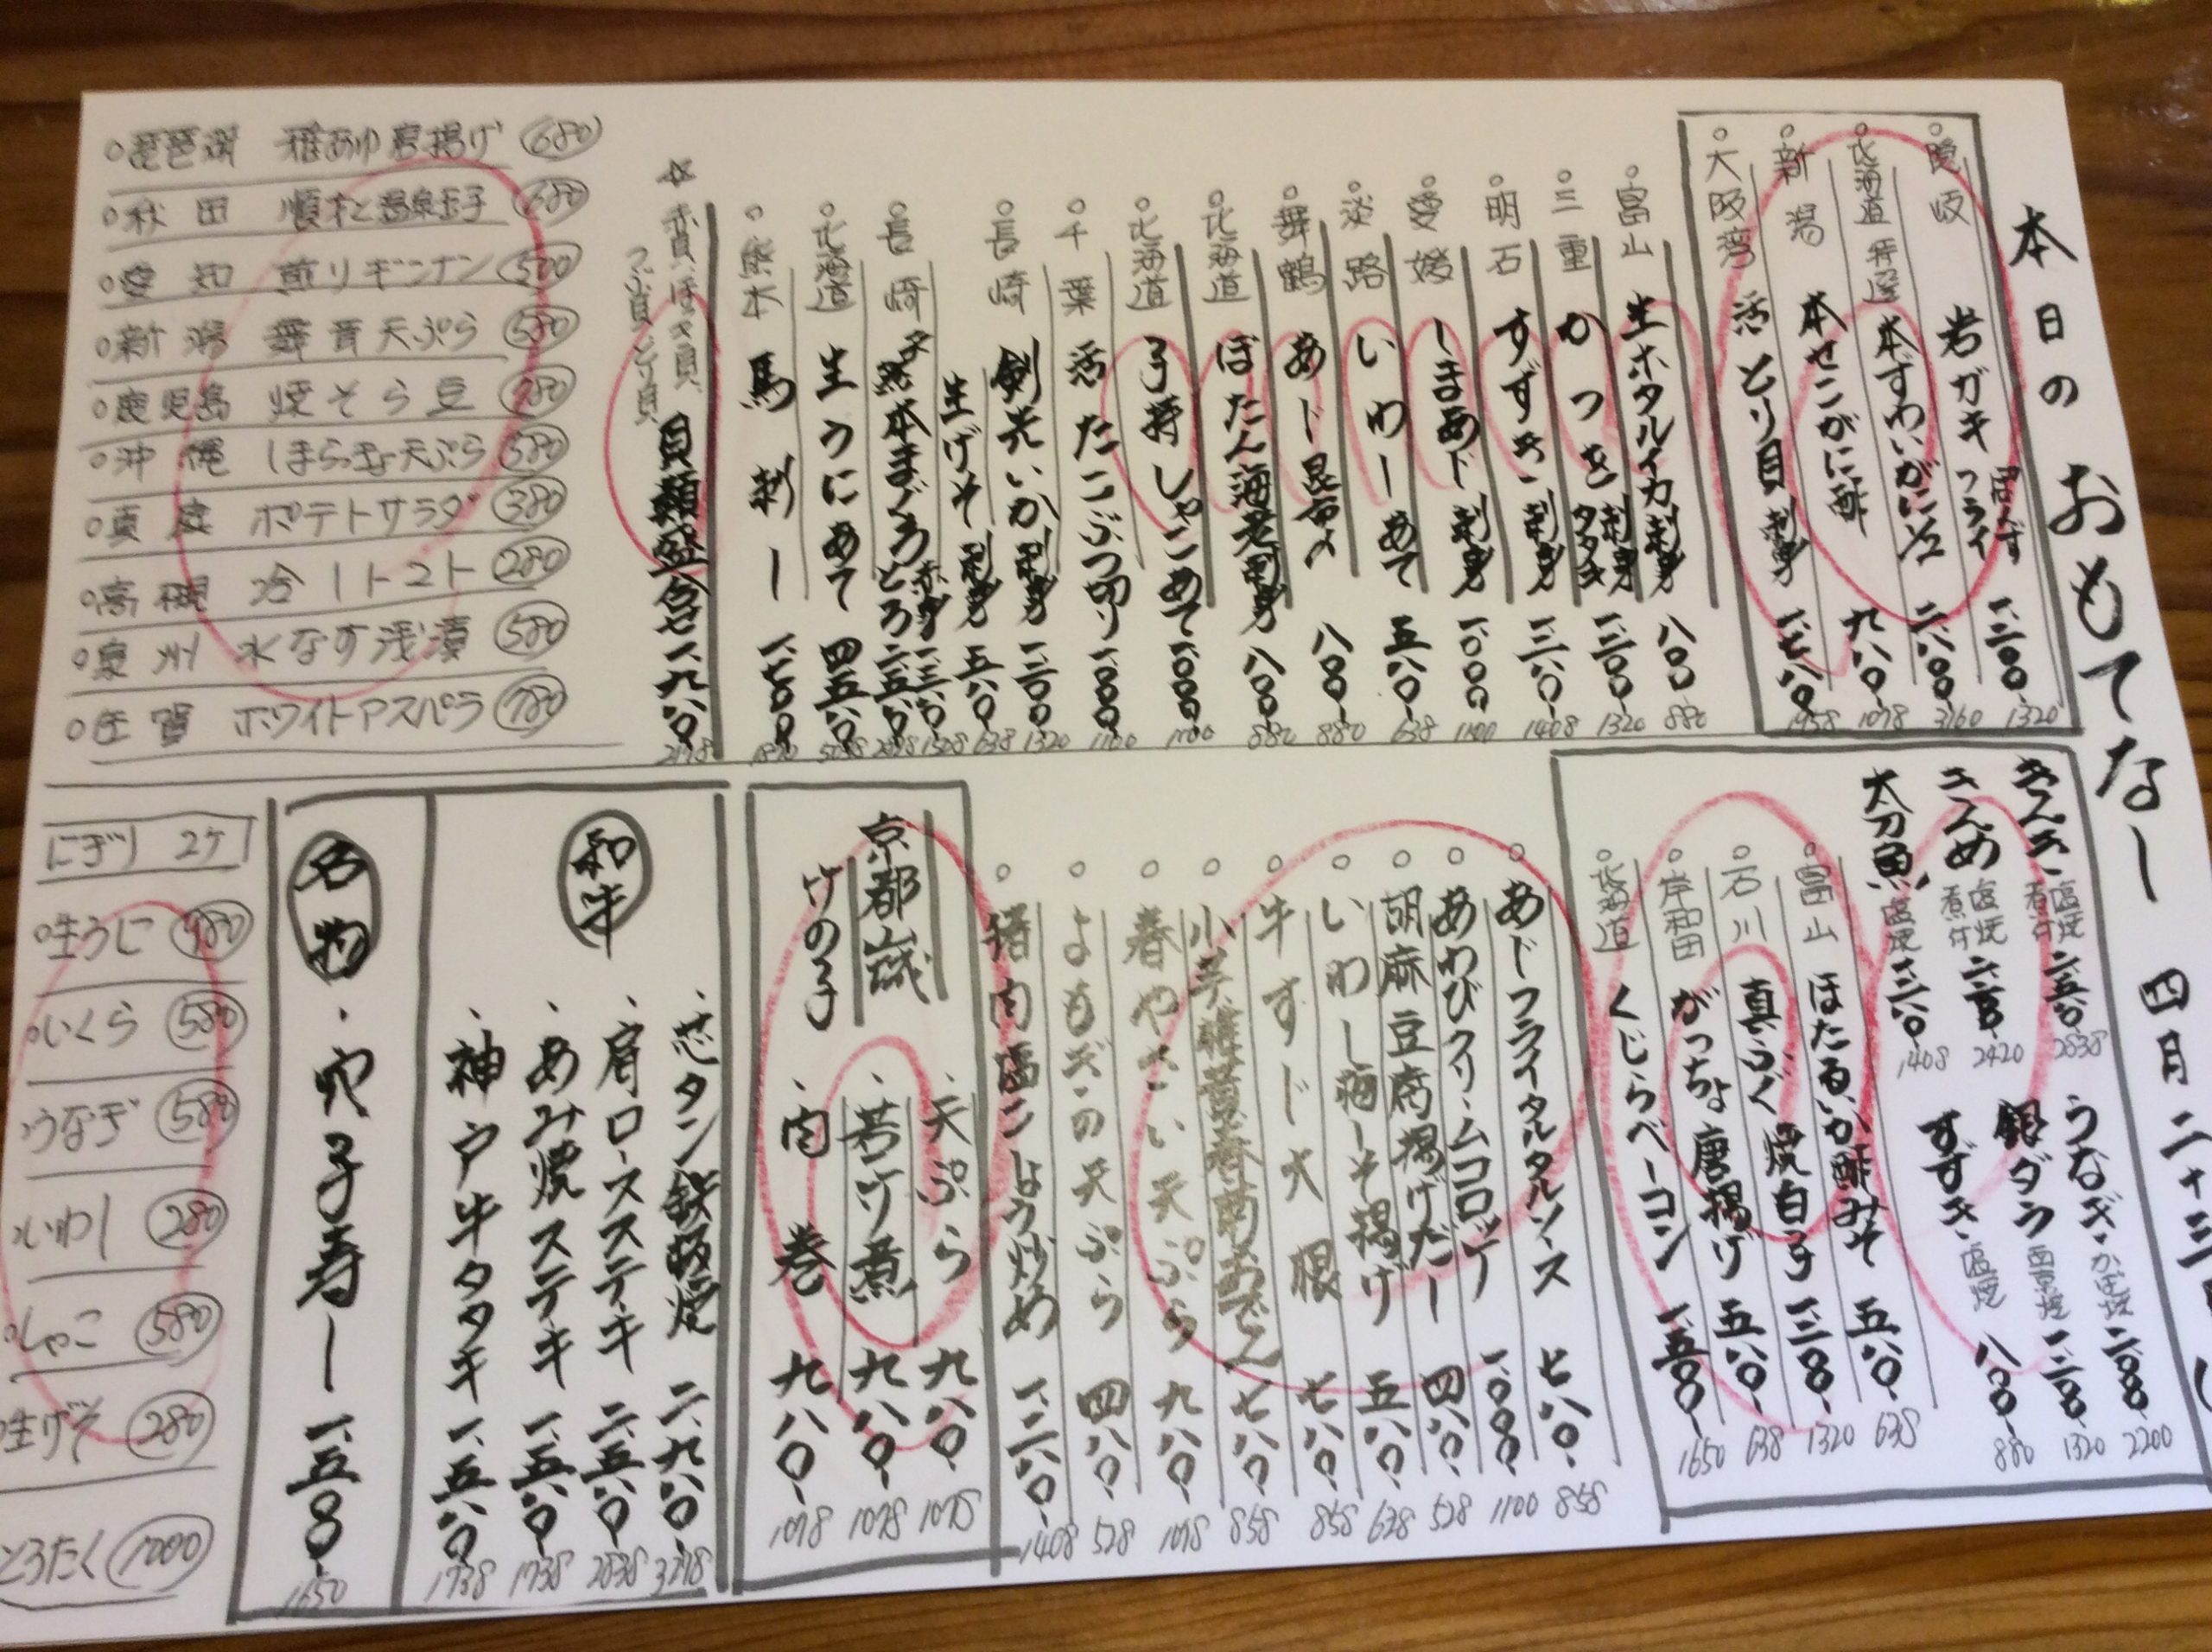 本日のおもてなし 四月二十三日
隠岐 岩ガキ ぽんず フライ 一、二〇〇- 1320
北海道 特選 本ずわいがに 二、八〇〇- 3160
新潟 本せこがに酢 九八〇- 1078
大阪湾 活とり貝 刺身 一、七八〇- 1958
富山 生ホタルイカ刺身 八〇〇- 880
三重 かつを 刺身 タタキ 一、二〇〇- 1320
明石 すずき 刺身 一、二八〇- 1408
愛媛 しまあじ 刺身 一、〇〇〇- 1100
淡路 いわしあて 五八〇- 638
舞鶴 あじ昆布〆 八〇〇- 880
北海道 ぼたん海老刺身 八〇〇- 880
北海道 子持しゃこあて 一、〇〇〇- 1100
千葉 活たこぶつ切り 一、〇〇〇- 1100
長崎 剣先いか 刺身 一、二〇〇- 1320
生げそ 刺身 五八〇- 638
長崎 本まぐろ 赤身 とろ
北海道 生うにあて 四、五八〇-
熊本 馬刺し 一、七〇〇- 1870
☆ 赤貝、ほっき貝、つぶ貝、とり貝 貝類盛合せ 一、九八〇- 2178
琵琶湖 稚あゆ唐揚げ 680
秋田 順才と温泉玉子 680
愛知 煎りギンナン 500
新潟 舞茸天ぷら 580
鹿児島 焼そら豆 780
沖縄 しまらっきょ天ぷら 580
真庭 ポテトサラダ 380
高槻 冷しトマト 280
泉州 水なす浅漬 580
佐賀 ホワイトアスパラ 780
きんき 塩焼 煮付 2838
きんめ 塩焼 煮付 二、二〇〇- 2420
太刀魚 塩焼 一、二八〇- 1408
うなぎ かば焼 二、〇〇〇- 2200
銀ダラ 西京焼 一、二〇〇- 1320
すずき 塩焼 八〇〇- 880
富山 ほたるいか酢みそ 五八〇- 638
石川 真ふぐ焼白子 一、二〇〇- 1320
岸和田 がっちょ唐揚げ 五八〇- 638
北海道 くじらベーコン 一、五〇〇- 1650
あじフライタルタルソース 七八〇- 858
あわびクリームコロッケ 一、〇〇〇- 1100
胡麻豆腐揚げだし 四八〇- 528
いわし梅しそ揚げ 五八〇- 638
牛すじ大根 七八〇- 858
小芋 春菊おでん 七八〇- 858
春やさい天ぷら 九八〇- 1078
よもぎふの天ぷら 四八〇- 528
猪肉塩こしょう炒め 一、二八〇- 1408
京都山城 竹の子
、天ぷら 九八〇- 1078
、若竹煮 九八〇- 1078
、肉巻 九八〇- 1078
和牛
、芯タン鉄板焼 二、九八〇- 3278
、肩ロースステーキ 二、五八〇- 2838
、あみ焼ステーキ 一、五八〇- 1738
、神戸牛タタキ 一、五八〇- 1738
名物
・穴子寿し 一、五〇〇- 1650
にぎり 2ケ
生うに 980
いくら 580
うなぎ 580
いわし 280
しゃこ 580
生げそ 280
とろたく 1000